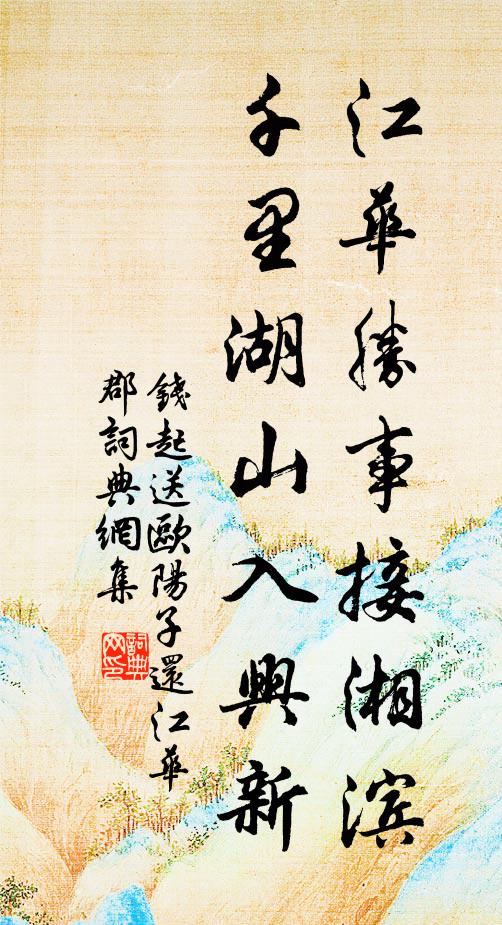 江華勝事接湘滨
千里湖山入興新
錢起送歐陽子還江華
郡詞典網集
詞典网印